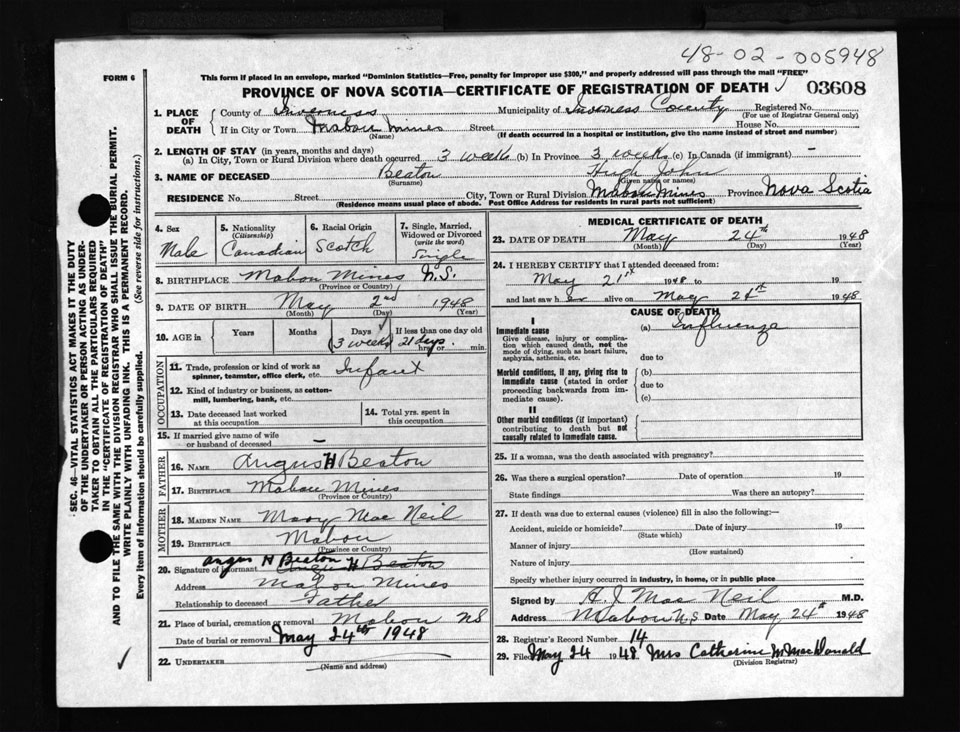 48-02-005948
FORM 6
This form if placed in an envelope, marked "Dominion Statistics—Free, penalty for improper use $300," and properly addressed will pass through the mail "FREE"
PROVINCE OF NOVA SCOTIA—CERTIFICATE OF REGISTRATION OF DEATH ✓ 03608
1. PLACE OF DEATH
County of Inverness Municipality of Inverness County Registered No.
(For use of Registrar General only)
If in City or Town Mabou Mines Street House No.
(Name) (If death occurred in a hospital or institution, give the name instead of street and number)
2. LENGTH OF STAY (in years, months and days)
(a) In City, Town or Rural Division where death occurred 3 weeks (b) In Province 3 weeks (c) In Canada (if immigrant) —
3. NAME OF DECEASED Beaton Hugh John
(Surname) (Given name or names)
RESIDENCE No. Street City, Town or Rural Division Mabou Mines Province Nova Scotia
(Residence means usual place of abode. Post Office Address for residents in rural parts not sufficient)
4. Sex
Male
5. Nationality
(Citizenship)
Canadian
6. Racial Origin
Scotch
7. Single, Married,
Widowed or Divorced
(write the word)
Single
8. BIRTHPLACE Mabou Mines N.S.
(Province or Country)
9. DATE OF BIRTH May 2nd 1948
(Month) (Day) (Year)
10. AGE in
Years
Months
Days ✓
(3 weeks)
If less than one day old
21 days
hrs. or min.
OCCUPATION
11. Trade, profession or kind of work as Infant
spinner, teamster, office clerk, etc.
12. Kind of industry or business, as cotton-
mill, lumbering, bank, etc.
13. Date deceased last worked
at this occupation
14. Total yrs. spent in
this occupation
15. If married give name of wife
or husband of deceased —
FATHER
16. NAME Angus H Beaton
17. BIRTHPLACE Mabou Mines
(Province or Country)
MOTHER
18. MAIDEN NAME Mary Mac Neil
19. BIRTHPLACE Mabou
(Province or Country)
Angus H Beaton
20. Signature of informant Angus H Beaton
Address Mabou Mines
Relationship to deceased Father
21. Place of burial, cremation or removal Mabou NS
Date of burial or removal May 24th 1948
22. UNDERTAKER
(Name and address)
MEDICAL CERTIFICATE OF DEATH
23. DATE OF DEATH May 24th 1948
(Month) (Day) (Year)
24. I HEREBY CERTIFY that I attended deceased from:
May 21st 1948 to 19
and last saw h alive on May 24th 1948
CAUSE OF DEATH
I
Immediate cause (a) Influenza
Give disease, injury or complica-
tion which caused death, not the
mode of dying, such as heart failure,
asphyxia, asthenia, etc.
due to
Morbid conditions, if any, giving rise to
immediate cause (stated in order
proceeding backwards from im-
mediate cause).
(b)
due to
(c)
II
Other morbid conditions (if important)
contributing to death but not
causally related to immediate cause.
25. If a woman, was the death associated with pregnancy?
26. Was there a surgical operation? Date of operation 19
State findings Was there an autopsy?
27. If death was due to external causes (violence) fill in also the following:—
Accident, suicide or homicide? Date of injury 19
(State which)
Manner of injury
(How sustained)
Nature of injury
Specify whether injury occurred in industry, in home, or in public place
Signed by A. J. Mac Neil M.D.
Address Mabou N.S Date May 24th 1948
28. Registrar's Record Number 14
29. Filed May 24 1948 Mrs Catherine M MacDonald
(Division Registrar)
SEC. 46—VITAL STATISTICS ACT MAKES IT THE DUTY
OF THE UNDERTAKER OR PERSON ACTING AS UNDER-
TAKER TO OBTAIN ALL THE PARTICULARS REQUIRED
IN THE "CERTIFICATE OF REGISTRATION OF DEATH"
AND TO FILE THE SAME WITH THE DIVISION REGISTRAR WHO SHALL ISSUE THE BURIAL PERMIT.
WRITE PLAINLY WITH UNFADING INK. THIS IS A PERMANENT RECORD.
Every item of information should be carefully supplied. (See reverse side for instructions.)
✓